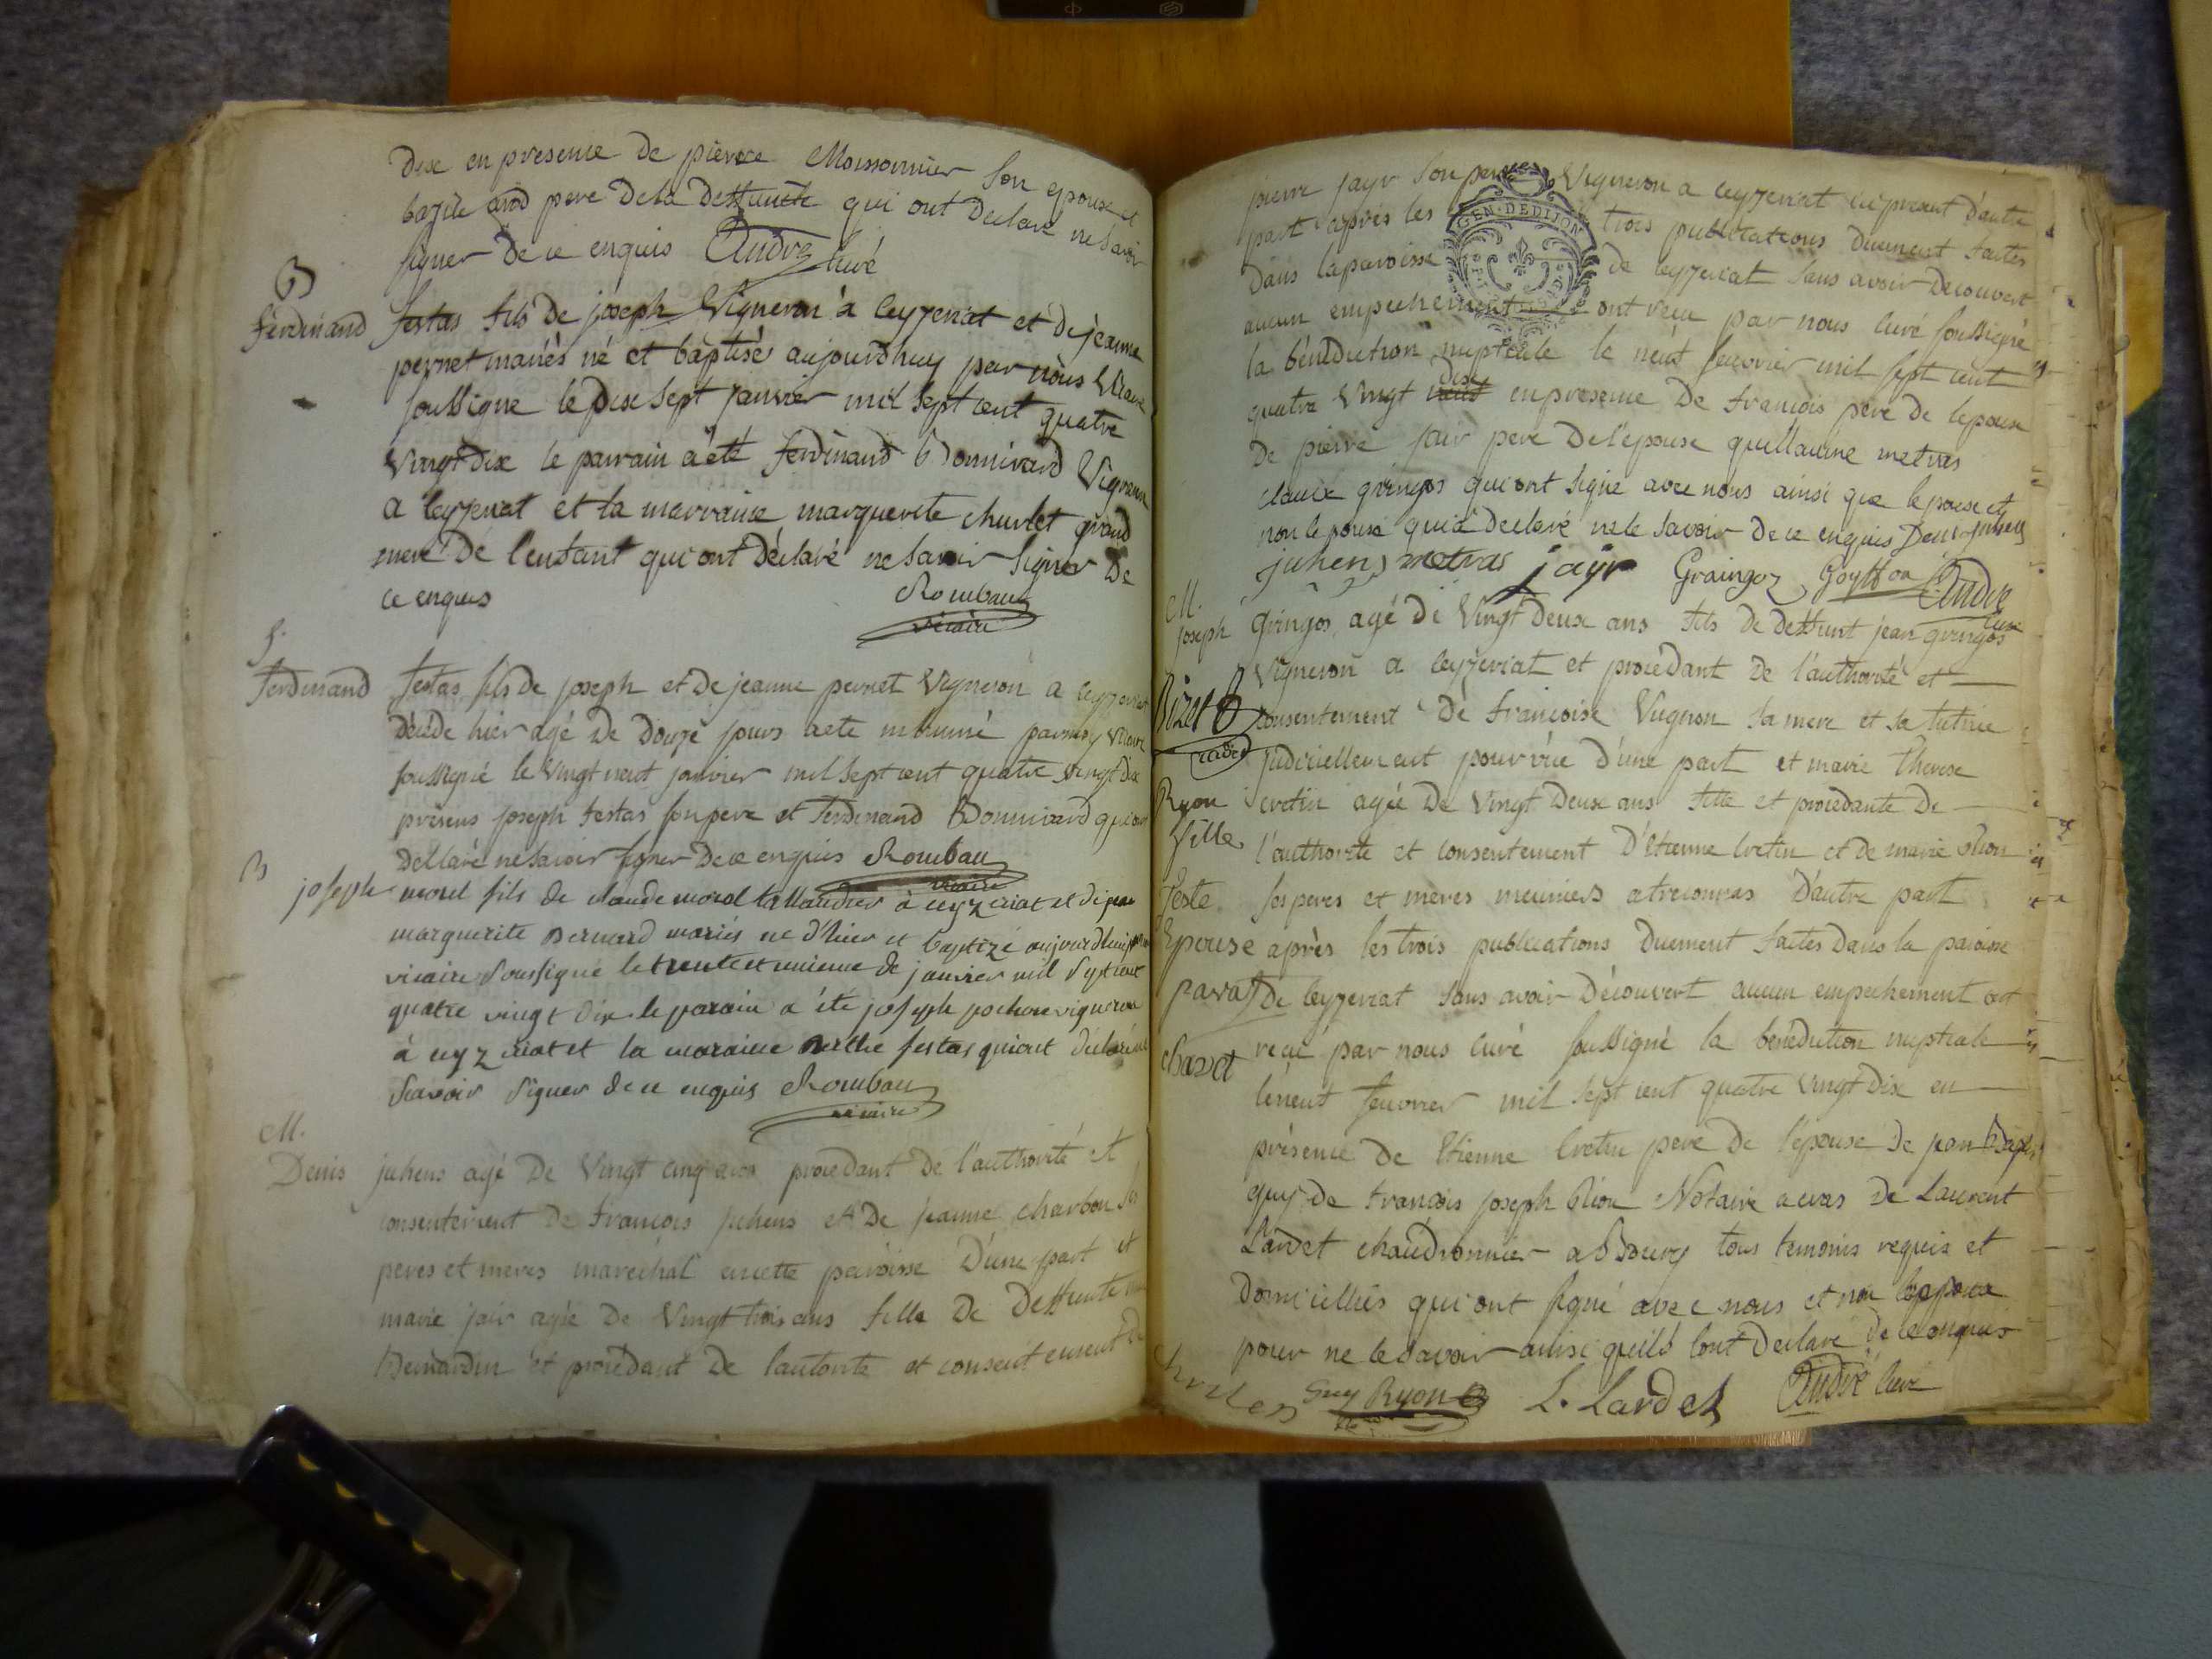 dix en presence de pierre Moissonnier son epouse et
bazile and pere dela deffuncte qui ont declaré ne savoir
signer de ce enquis André curé
B
ferdinand festas fils de joseph Vigneron a ceyzeriat et de jeanne
pernet mariés né et baptisé aujourdhuy par nous Vicaire
soussigne le dix sept janvier mil sept cent quatre
Vingt dix le parrain a été ferdinand Bonnivard Vigneron
a ceyzeriat et la marraine marguerite churlet grand
mere de l'enfant qui ont déclaré ne savoir signer de
ce enquis Roubaux
vicaire
S.
ferdinand festas fils de joseph et de jeanne pernet Vigneron a ceyzeriat
décédé hier agé de douze jours a ete inhumé par moy vicaire
soussigné le Vingt neuf janvier mil sept cent quatre Vingt dix
présens joseph festas son pere et ferdinand Bonnivard qui ont
dellaré ne savoir signer de ce enquis Roubaux
vicaire
B
joseph morel fils de claude morel taillandier à ceyzériat et de jeanne
marguerite Bernard mariés né d'hier et baptizé aujourdhui par nous
vicaire soussigné le trente et unieme de janvier mil sept cent
quatre vingt dix le parain a été joseph pochon vigneron
à ceyzériat et la maraine festas qui ont déclaré ne
scavoir signer de ce enquis Roubaux
vicaire
M.
Denis juhens agé de Vingt cinq ans procedant de l'authorité et
consentement de françois juhens et de jeanne charbon ses
peres et meres maréchal en cette paroisse D'une part et
marie jair agée de Vingt trois ans fille de deffunte
Bernardin et procédant de lautorité et consentement de
pierre jayr son pere Vigneron a ceyzeriat cy present d'autre
part après les trois publications duement faites
GEN·DE DIJON
dans la paroisse de ceyzeriat sans avoir decouvert
aucun empechement ont reçu par nous curé soussigné
la bénédiction nuptiale le neuf fevrier mil sept cent
dix
quatre Vingt neuf en presence de francois pere de lepoux
de pierre jair pere de l'épouse guillaume metras
claude gringos qui ont signé avec nous ainsi que lepoux et
non lepouse qui a declaré ne le savoir de ce enquis Denis juhens
juhens metras jayr Graingoz goyffon André
curé
M.
joseph gringos agé de Vingt deux ans fils de deffunt jean gringos
Vigneron a ceyzeriat et procédant de l'authorité et
consentement de françoise Vugnon sa mere et sa tutrice
judiciellement pourvue d'une part et marie therese
cretin agée de Vingt deux ans fille et procedante de
l'authorité et consentement D'etienne cretin et de marie
ses peres et mères meuniers a treconnas d'autre part
après les trois publications duement faites dans la paroisse
de ceyzeriat sans avoir découvert aucun empechement ont
reçu par nous curé soussigné la bénédiction nuptiale
le neuf fevrier mil sept cent quatre Vingt dix en
présence de Etienne Cretin pere de l'épouse de jean Baptiste
guy de francois joseph Notaire a de Laurent
Lardet chaudronnier a Bourg tous temoins requis et
domiciliés qui ont signé avec nous et non lepoux
pour ne le savoir ainsi quils lont declaré de ce enquis
Guy Ryon L. Lardet André Curé
Bizet
cadet
Ryon
Ville
Teste
Epouse
paraz
chosset